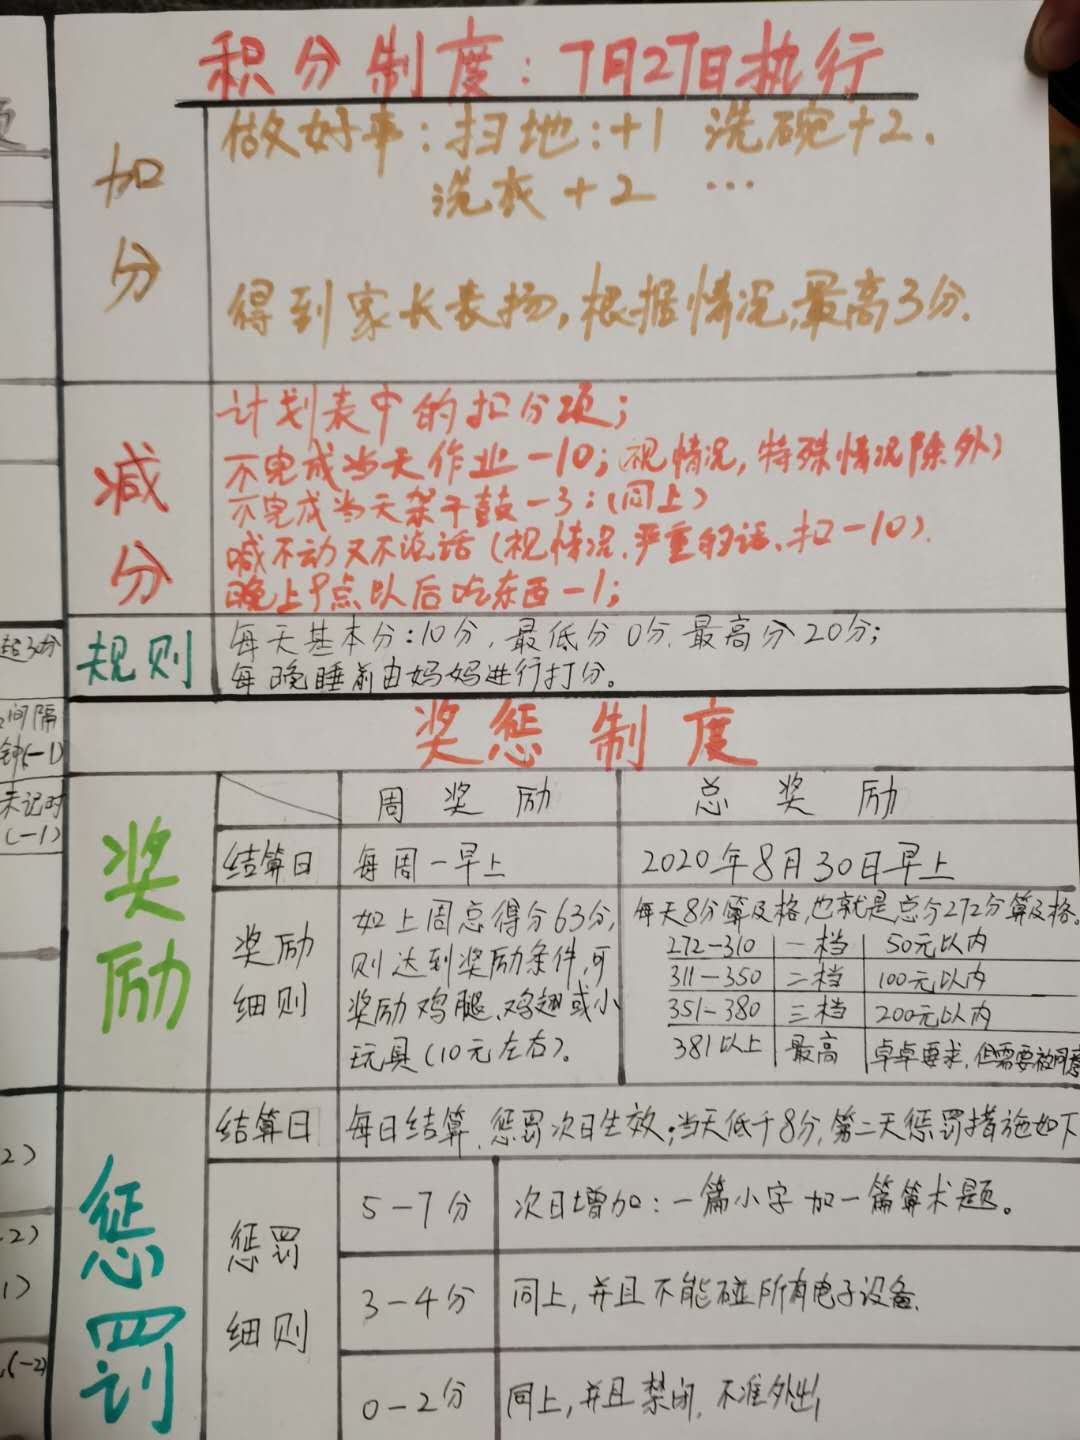 积分制度：7月27日执行
加分
做好事：扫地：+1 洗碗+2.
洗衣+2 …
得到家长表扬，根据情况，最高3分.
减分
计划表中的扣分项；
不完成当天作业-10；（视情况，特殊情况除外）
不完成当天架子鼓-3：（同上）
喊不动又不说话（视情况，严重的话、扣-10）.
晚上9点以后吃东西-1；
规则
每天基本分：10分，最低分0分，最高分20分；
每晚睡前由妈妈进行打分。
奖惩制度
奖励
周奖励
总奖励
结算日
每周一早上
2020年8月30日早上
奖励
细则
如上周总得分63分，
则达到奖励条件，可
奖励鸡腿、鸡翅或小
玩具（10元左右）。
每天8分算及格，也就是总分272分算及格。
272-310 一档 50元以内
311-350 二档 100元以内
351-380 三档 200元以内
381以上 最高 卓卓要求，但需要被同意
惩罚
结算日
每日结算，惩罚次日生效；当天低于8分，第二天惩罚措施如下
惩罚
细则
5-7分
次日增加：一篇小字加一篇算术题。
3-4分
同上，并且不能碰所有电子设备.
0-2分
同上，并且禁闭，不准外出
超30分
间隔
钟(-1)
未记时
(-1)
2)
2)
1)
(-2)